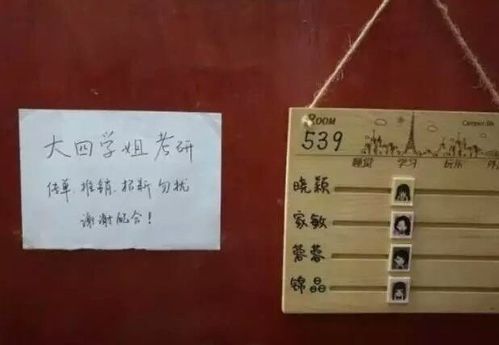 大四学姐考研
传单、推销、扫新勿扰
谢谢配合！
ROOM
539
Campus life
睡觉 学习 玩乐
晓颖
家敏
蓉蓉
锦晶